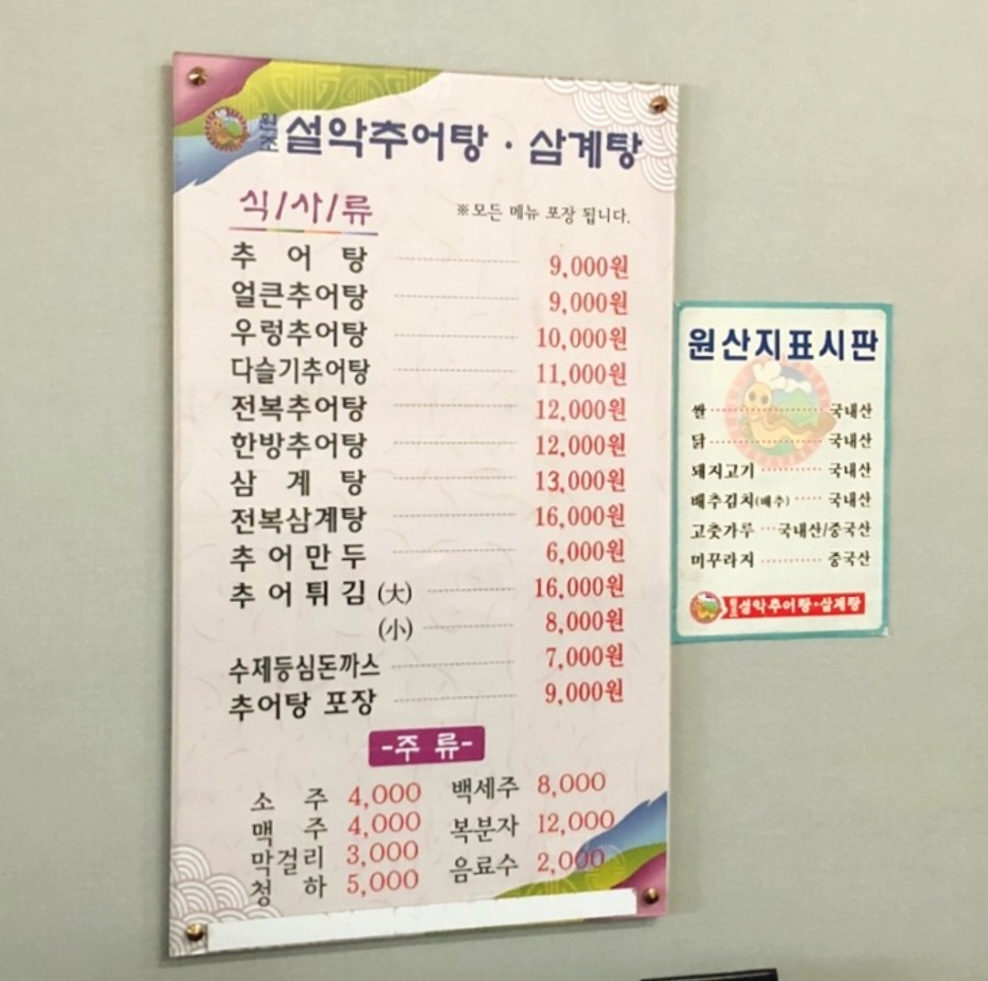 원조 설악추어탕 · 삼계탕
식/사/류
※모든 메뉴 포장 됩니다.
추 어 탕 9,000원
얼큰추어탕 9,000원
우렁추어탕 10,000원
다슬기추어탕 11,000원
전복추어탕 12,000원
한방추어탕 12,000원
삼 계 탕 13,000원
전복삼계탕 16,000원
추 어 만 두 6,000원
추 어 튀 김 (大) 16,000원
(小) 8,000원
수제등심돈까스 7,000원
추어탕 포장 9,000원
-주 류-
소 주 4,000 백세주 8,000
맥 주 4,000 복분자 12,000
막걸리 3,000 음료수 2,000
청 하 5,000
원산지표시판
쌀 국내산
닭 국내산
돼지고기 국내산
배추김치(배추) 국내산
고춧가루 국내산/중국산
미꾸라지 중국산
원조 설악추어탕·삼계탕